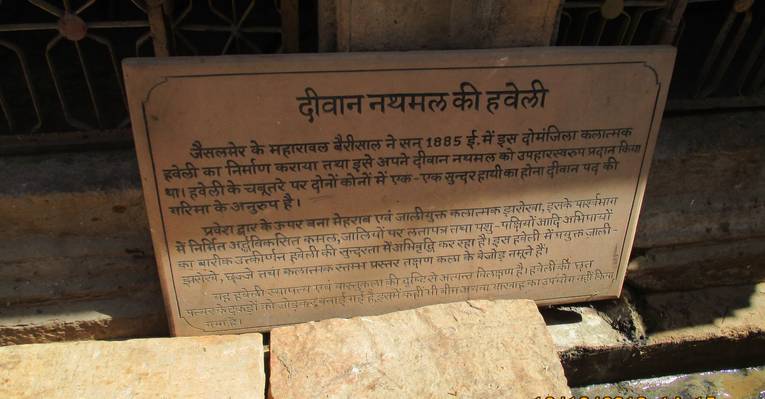 दीवान नथमल की हवेली
जैसलमेर के महारावल बैरीसाल ने सन् 1885 ई. में इस दोमंजिला कलात्मक
हवेली का निर्माण कराया तथा इसे अपने दीवान नथमल को उपहारस्वरुप प्रदान किया
था। हवेली के चबूतरे पर दोनों कोनों में एक-एक सुन्दर हाथी का होना दीवान पद की
गरिमा के अनुरुप है।
प्रवेश द्वार के ऊपर बना मेहराब एवं जालीयुक्त कलात्मक झरोखा, इसके पार्श्वभाग
में निर्मित अर्द्धविकसित कमल, जालियों पर लतापत्र तथा पशु-पक्षियों आदि अभिप्रायों
का बारीक उत्कीर्णन हवेली की सुन्दरता में अभिवृद्धि कर रहा है। इस हवेली में प्रयुक्त जाली-
झरोखे, छज्जे तथा कलात्मक स्तम्भ प्रस्तर तक्षण कला के बेजोड़ नमूने हैं।
यह हवेली स्थापत्य एवं वास्तुकला की दृष्टि से अत्यन्त विलक्षण है। हवेली की छत
पत्थर के टुकड़ों को जोड़कर बनाई गई है, इसमें कहीं भी बीम अथवा का उपयोग नहीं किया
गया है।